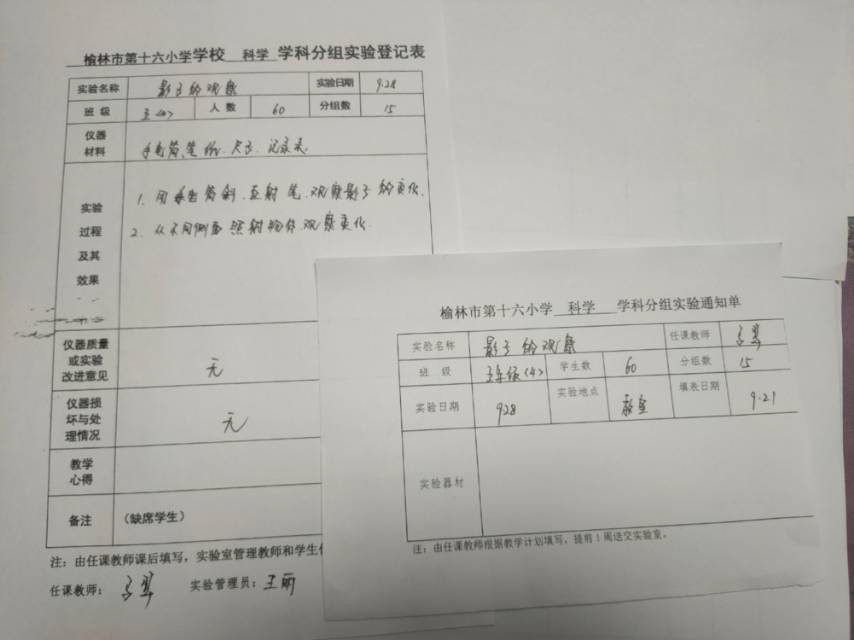 榆林市第十六小学学校 科学 学科分组实验登记表
实验名称 影子的观察 实验日期 9.28
班级 五〈4〉 人数 60 分组数 15
仪器材料 手电筒、笔、纸、尺子、记录表
实验过程及其效果
1. 用手电筒斜、直射笔、观察影子的变化.
2. 从不同侧面照射物体观察变化.
仪器质量或实验改进意见 无
仪器损坏与处理情况 无
教学心得
备注 (缺席学生)
注：由任课教师课后填写，实验室管理教师和学生
任课教师： 实验管理员：王丽
榆林市第十六小学 科学 学科分组实验通知单
实验名称 影子的观察 任课教师
班级 五年级〈4〉 学生数 60 分组数 15
实验日期 928 实验地点 教室 填表日期 9.21
实验器材
注：由任课教师根据教学计划填写，提前1周送交实验室。